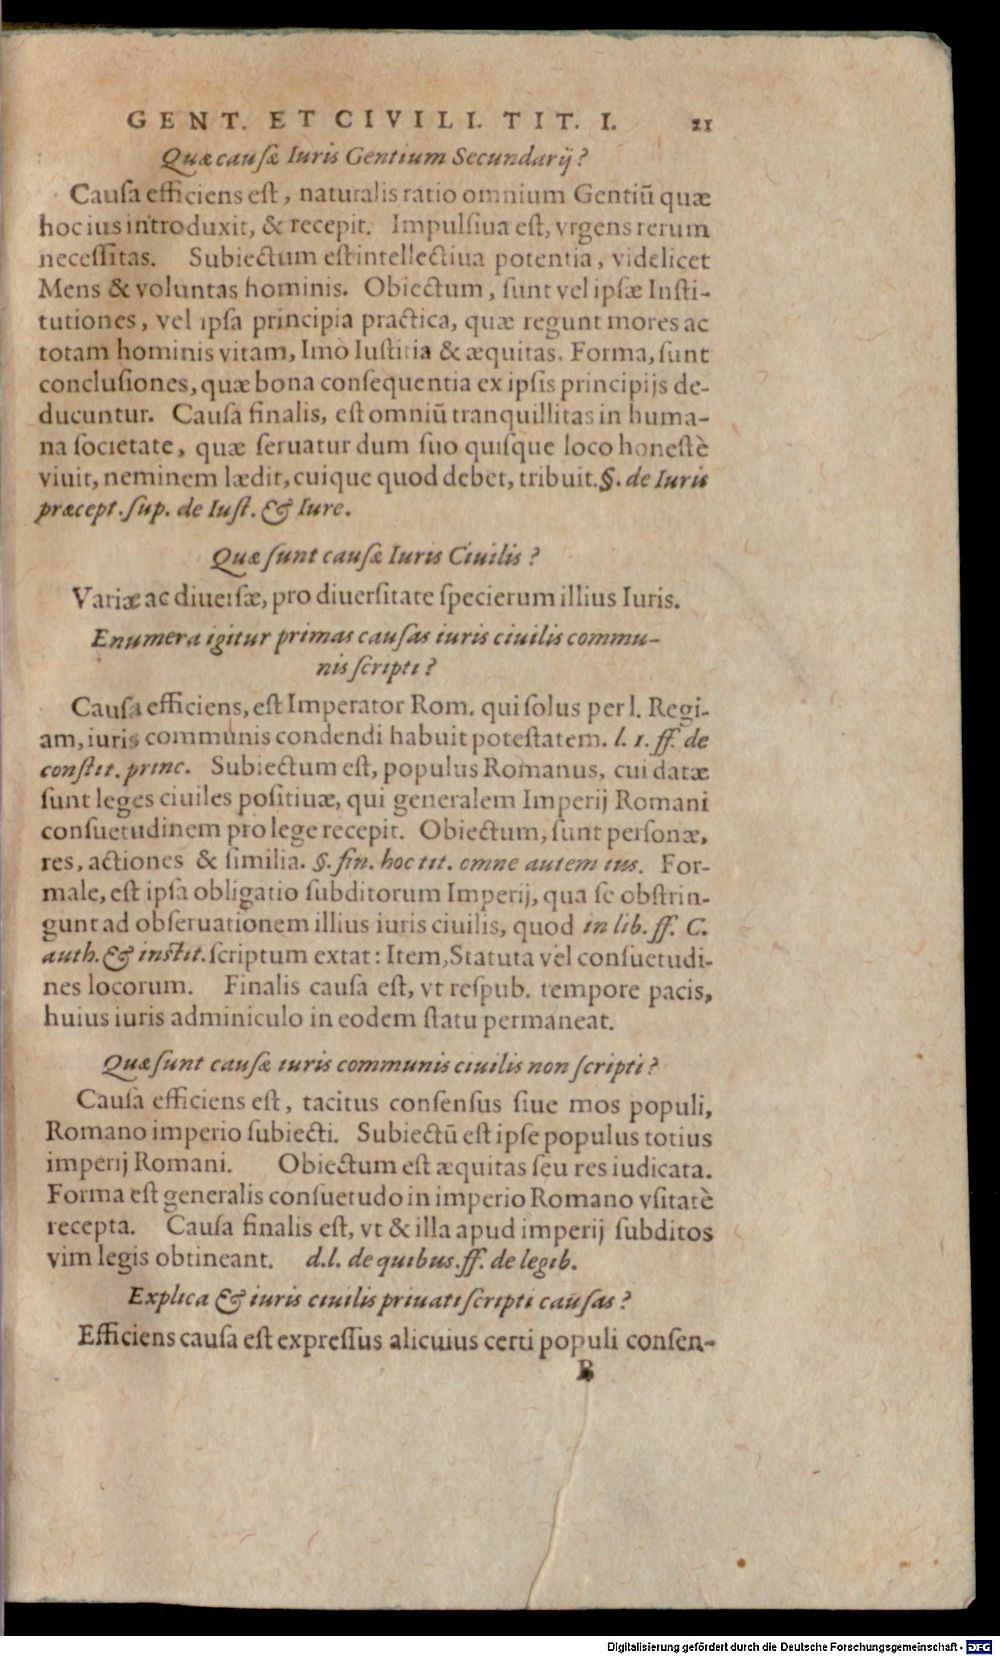 GENT. ET CIVILI. TIT. I. 21
Quæ causæ Iuris Gentium Secundarij?
Cauſa efficiens est, naturalis ratio omnium Gentiū quæ
hoc ius introduxit, & recepit. Impulſiua est, vrgens rerum
neceſſitas. Subiectum est intellectiua potentia, videlicet
Mens & voluntas hominis. Obiectum, ſunt vel ipſæ Inſti-
tutiones, vel ipſa principia practica, quæ regunt mores ac
totam hominis vitam, Imò Iuſtitia & æquitas. Forma, ſunt
concluſiones, quæ bona conſequentia ex ipſis principijs de-
ducuntur. Cauſa finalis, eſt omniū tranquillitas in huma-
na ſocietate, quæ ſeruatur dum ſuo quiſque loco honeſtè
viuit, neminem lædit, cuique quod debet, tribuit. §. de Iuris
præcept. ſup. de Iuſt. & Iure.
Quæ ſunt cauſæ Iuris Ciuilis?
Variæ ac diuerſæ, pro diuerſitate ſpecierum illius Iuris.
Enumera igitur primas cauſas iuris ciuilis commu-
nis ſcripti?
Cauſa efficiens, eſt Imperator Rom. qui ſolus per l. Regi-
am, iuris communis condendi habuit poteſtatem. l. 1. ff. de
conſtit. princ. Subiectum eſt, populus Romanus, cui datæ
ſunt leges ciuiles poſitiuæ, qui generalem Imperij Romani
conſuetudinem pro lege recepit. Obiectum, ſunt perſonæ,
res, actiones & ſimilia. §. fin. hoc tit. omne autem ius. For-
male, eſt ipſa obligatio ſubditorum Imperij, qua ſe obſtrin-
gunt ad obſeruationem illius iuris ciuilis, quod in lib. ff. C.
auth. & inſtit. ſcriptum extat: Item, Statuta vel conſuetudi-
nes locorum. Finalis cauſa eſt, vt reſpub. tempore pacis,
huius iuris adminiculo in eodem ſtatu permaneat.
Quæ ſunt cauſæ iuris communis ciuilis non ſcripti?
Cauſa efficiens eſt, tacitus conſenſus ſiue mos populi,
Romano imperio ſubiecti. Subiectū eſt ipſe populus totius
imperij Romani. Obiectum eſt æquitas ſeu res iudicata.
Forma eſt generalis conſuetudo in imperio Romano vſitatè
recepta. Cauſa finalis eſt, vt & illa apud imperij ſubditos
vim legis obtineant. d.l. de quibus. ff. de legib.
Explica & iuris ciuilis priuati ſcripti cauſas?
Efficiens cauſa eſt expreſſus alicuius certi populi conſen-
B
Digitalisierung gefördert durch die Deutsche Forschungsgemeinschaft - DFG